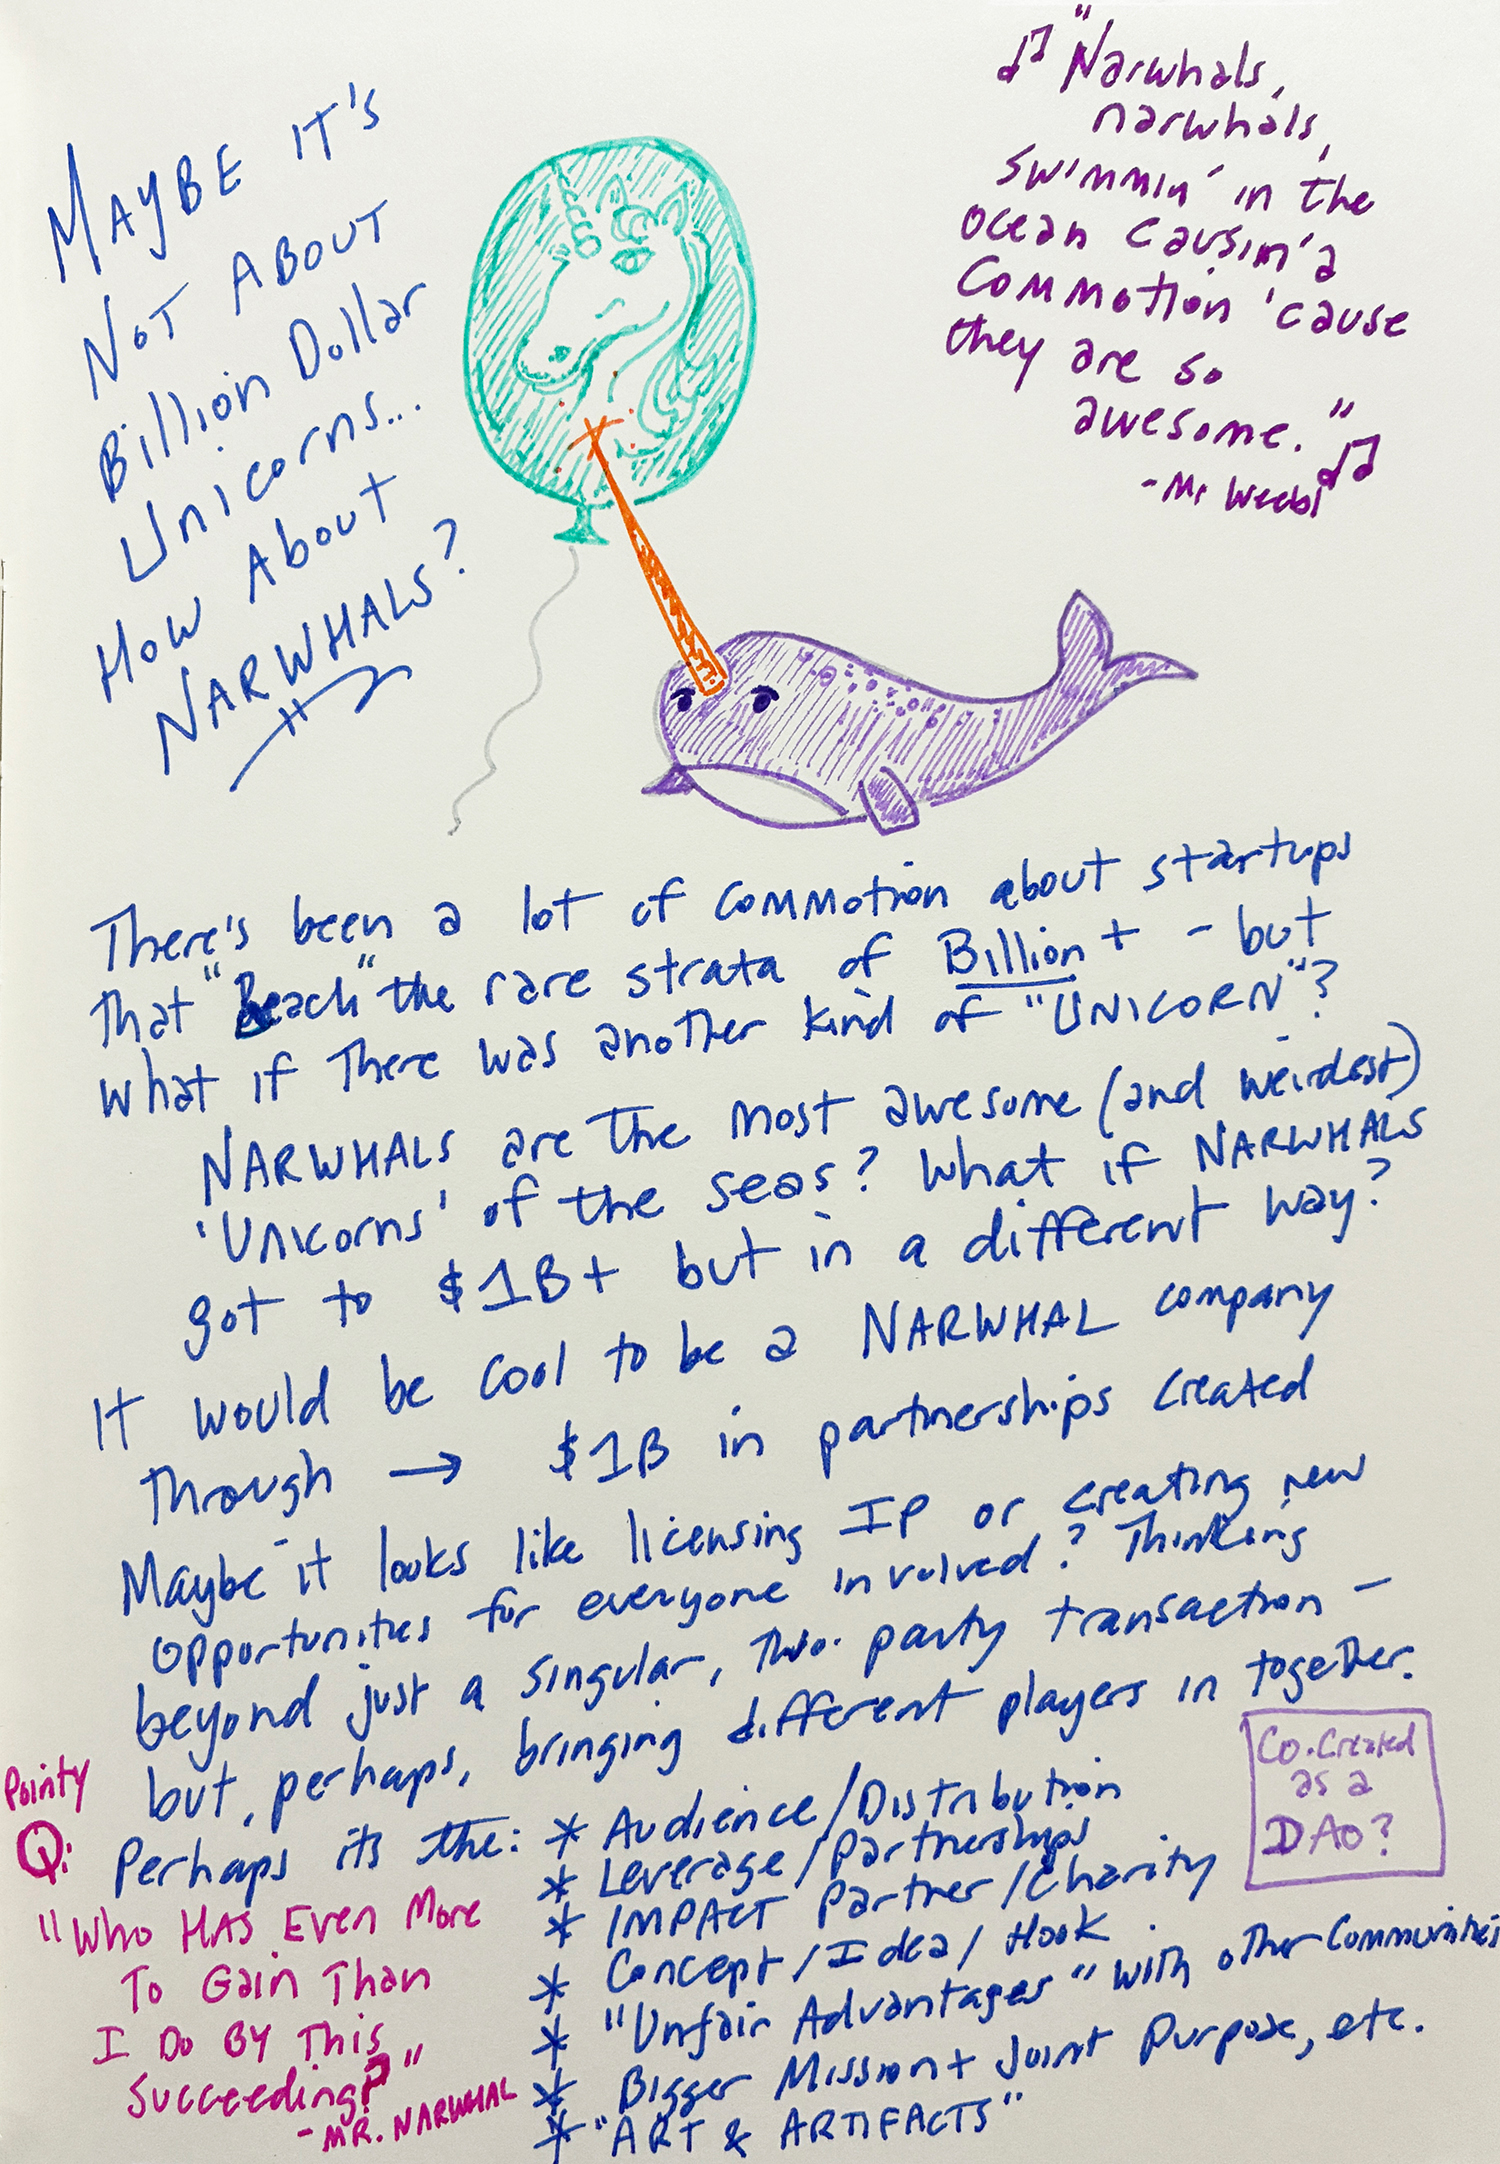 Maybe it's
Not About
Billion Dollar
Unicorns...
How About
NARWHALS?
"Narwhals,
narwhals,
swimmin' in the
ocean causin' a
commotion 'cause
they are so
awesome."
- Mr Weebl
There's been a lot of commotion about startups
that "Reach" the rare strata of Billion + - but
what if there was another kind of "UNICORN"?
NARWHALS are the most awesome (and weirdest)
'Unicorns' of the seas? What if NARWHALS
got to $1B+ but in a different way?
It would be cool to be a NARWHAL company
through → $1B in partnerships created
Maybe it looks like licensing IP or creating new
opportunities for everyone involved? Thinking
beyond just a singular, two-party transaction -
but, perhaps, bringing different players in together.
Perhaps its the: * Audience/Distribution
* Leverage/Partnerships
* IMPACT Partner/Charity
* Concept/Idea/Hook
* "Unfair Advantages" with other Communities
* Bigger Mission + Joint Purpose, etc.
* "ART & ARTIFACTS"
Co-Created
as a
DAO?
Pointy
Q:
"Who Has Even More
To Gain Than
I Do By This
Succeeding?"
- MR. NARWHAL